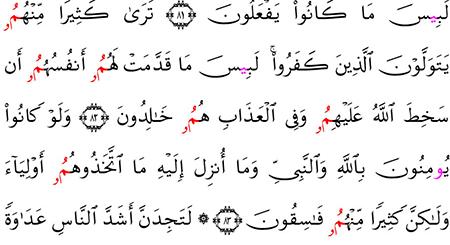 لَبِيسَ مَا كَانُواْ يَفْعَلُونَ ۝٨١ تَرَىٰ كَثِيرٗا مِّنْهُمُۥ
يَتَوَلَّوْنَ ٱلَّذِينَ كَفَرُواْۚ لَبِيسَ مَا قَدَّمَتْ لَهُمُۥ أَنفُسُهُمُۥ أَن
سَخِطَ ٱللَّهُ عَلَيْهِمُۥ وَفِي ٱلْعَذَابِ هُمُۥ خَٰلِدُونَ ۝٨٢ وَلَوْ كَانُواْ
يُومِنُونَ بِٱللَّهِ وَٱلنَّبِيِّ وَمَا أُنزِلَ إِلَيْهِ مَا ٱتَّخَذُوهُمُۥ أَوْلِيَآءَ
وَلَٰكِنَّ كَثِيرٗا مِّنْهُمُۥ فَٰسِقُونَ ۝٨٣ ۞ لَتَجِدَنَّ أَشَدَّ ٱلنَّاسِ عَدَٰوَةٗ